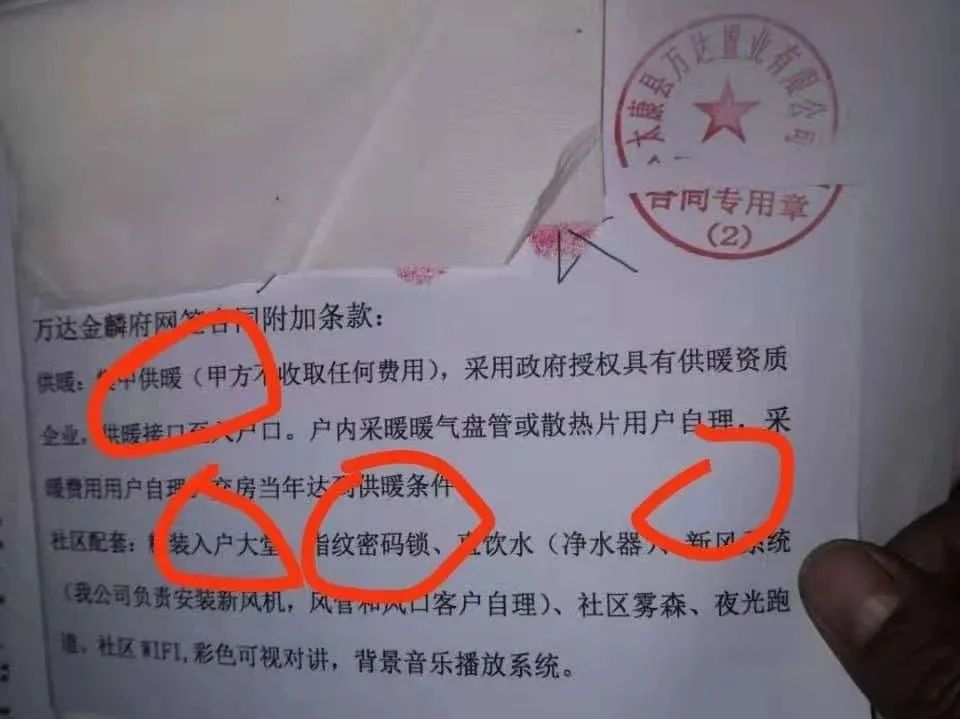 太康县万达置业有限公司
合同专用章
(2)
万达金麟府网签合同附加条款：
供暖：集中供暖（甲方不收取任何费用），采用政府授权具有供暖资质
企业，供暖接口至入户口。户内采暖暖气盘管或散热片用户自理，采
暖费用用户自理，交房当年达到供暖条件
社区配套：精装入户大堂、指纹密码锁、直饮水（净水器）、新风系统
（我公司负责安装新风机，风管和风口客户自理）、社区雾森、夜光跑
道，社区WIFI,彩色可视对讲，背景音乐播放系统。